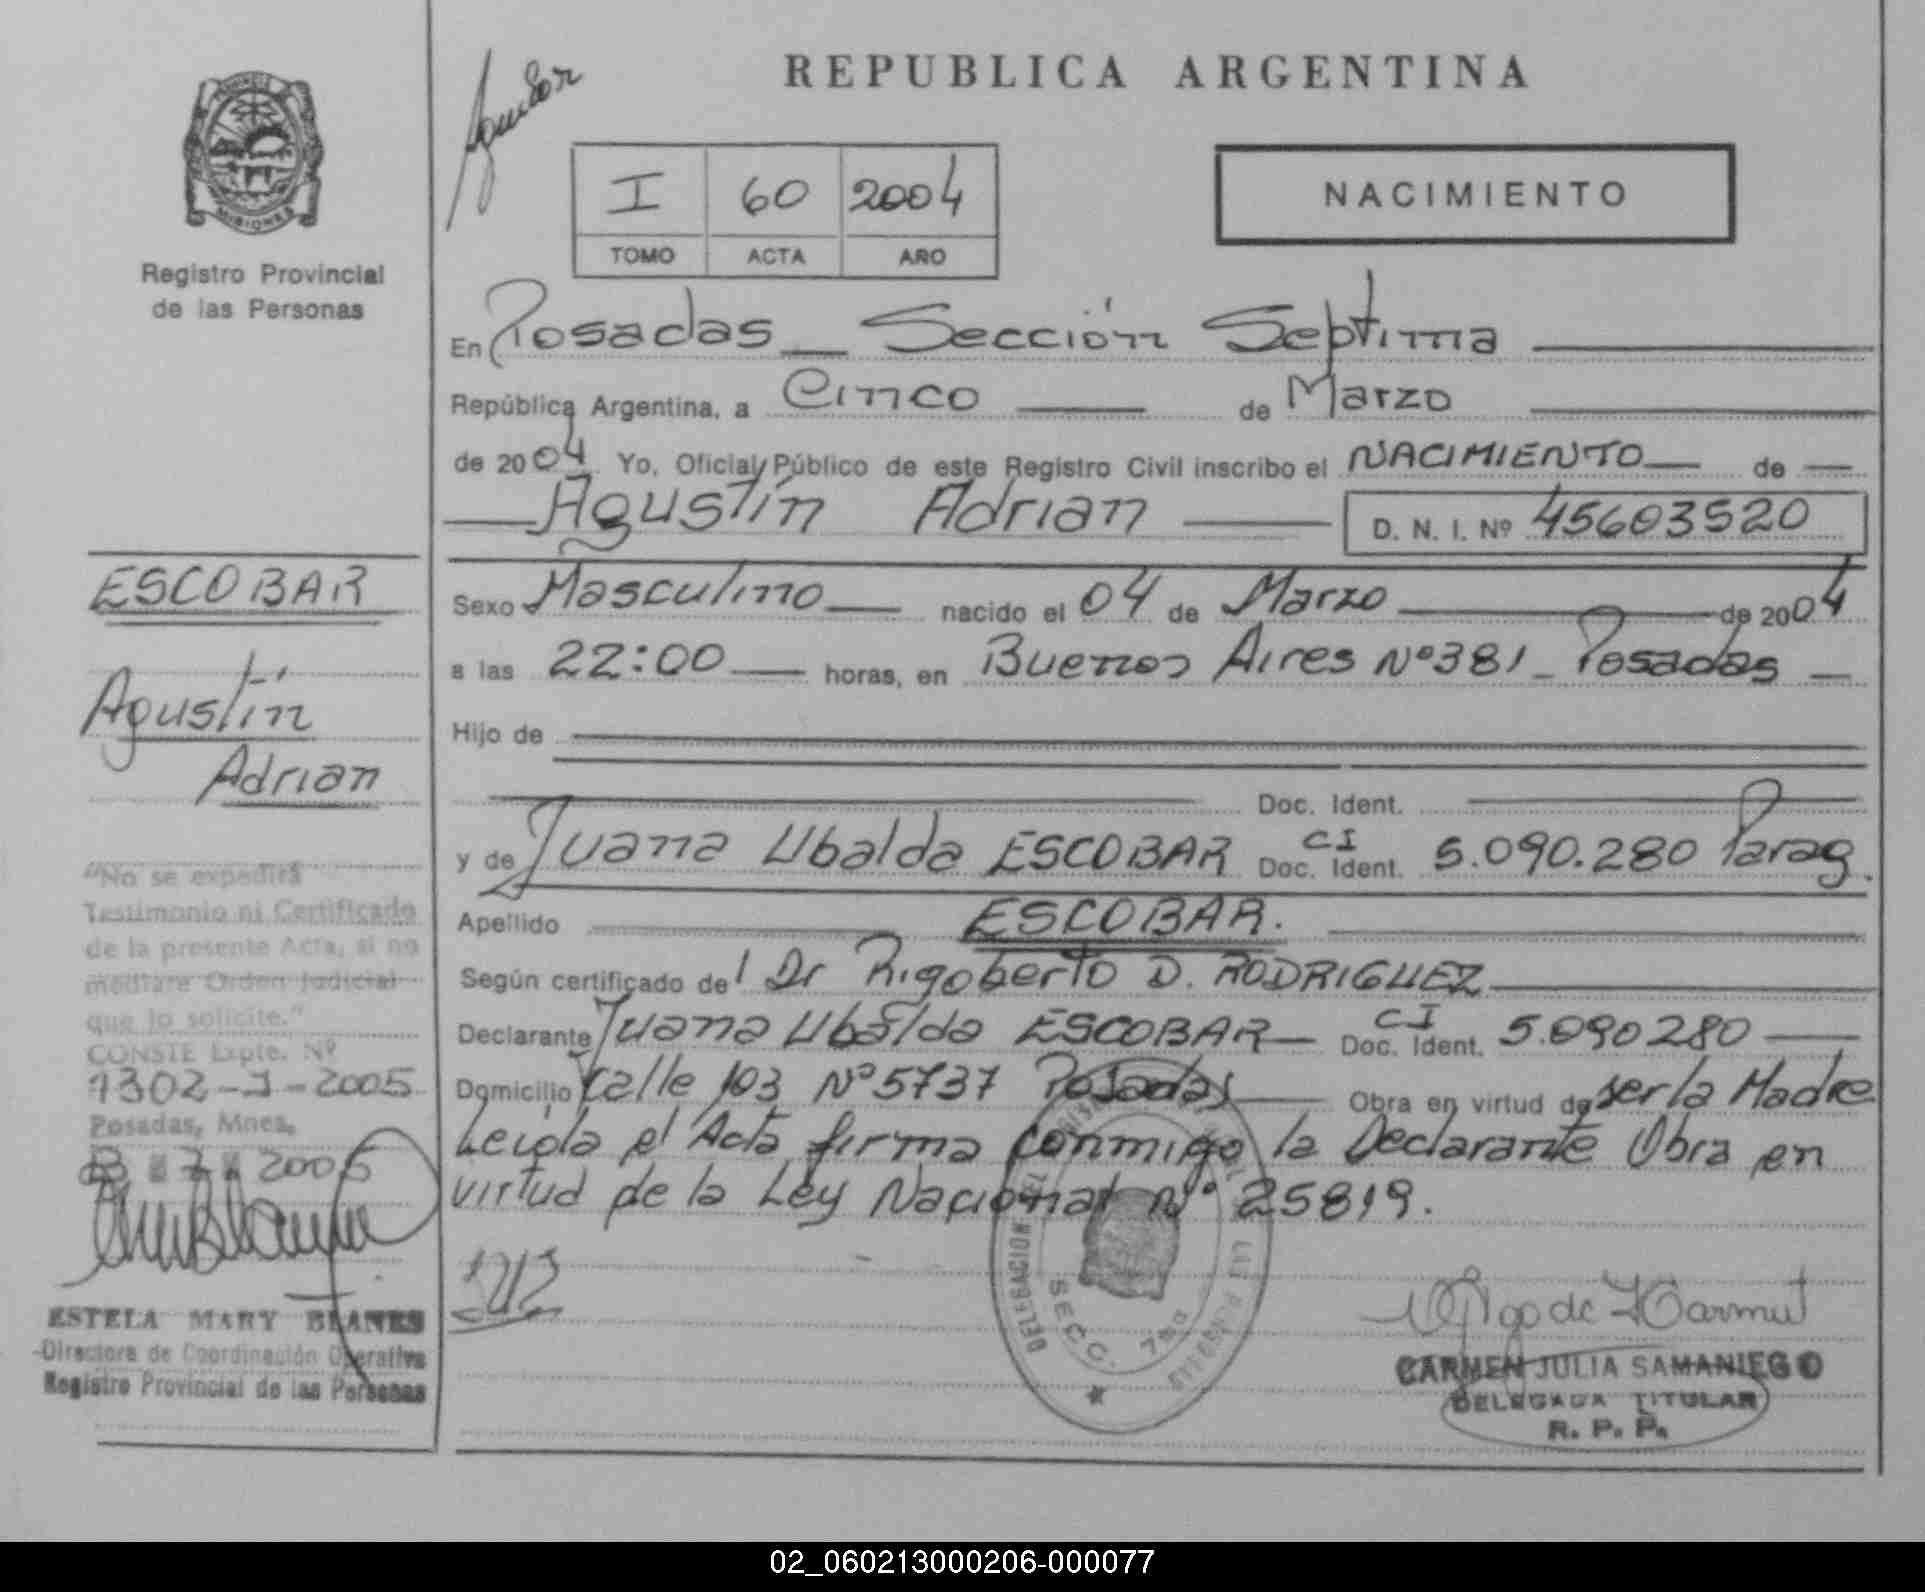 REPUBLICA ARGENTINA
MISIONES
Registro Provincial
de las Personas
I 60 2004
TOMO ACTA AÑO
NACIMIENTO
En Posadas — Sección Septima
República Argentina, a Cinco de Marzo
de 2004 Yo, Oficial Público de este Registro Civil inscribo el NACIMIENTO de
Agustín Adrian D. N. I. Nº 45603520
Sexo Masculino nacido el 04 de Marzo de 2004
a las 22:00 horas, en Buenos Aires Nº 381 - Posadas
Hijo de
Doc. Ident.
y de Juana Ubalda ESCOBAR CI Doc. Ident. 5.090.280 Parag.
Apellido ESCOBAR.
Según certificado del Dr Rigoberto D. RODRIGUEZ
Declarante Juana Ubalda ESCOBAR CI Doc. Ident. 5.090280
Domicilio Calle 103 Nº 5737 Posadas Obra en virtud de ser la Madre
Leida el Acta firma conmigo la Declarante Obra en
virtud de la Ley Nacional Nº 25819.
ESCOBAR
Agustín
Adrian
"No se expedirá
Testimonio ni Certificado
de la presente Acta, si no
mediare Orden Judicial
que lo solicite."
CONSTE Expte. Nº
1302-J-2005
Posadas, Mnes,
2005
ESTELA MARY BLANES
Directora de Coordinación Operativa
Registro Provincial de las Personas
DELEGACION DEL
SECC. 7ma
CARMEN JULIA SAMANIEGO
DELEGADA TITULAR
R. P. P.
02_060213000206-000077